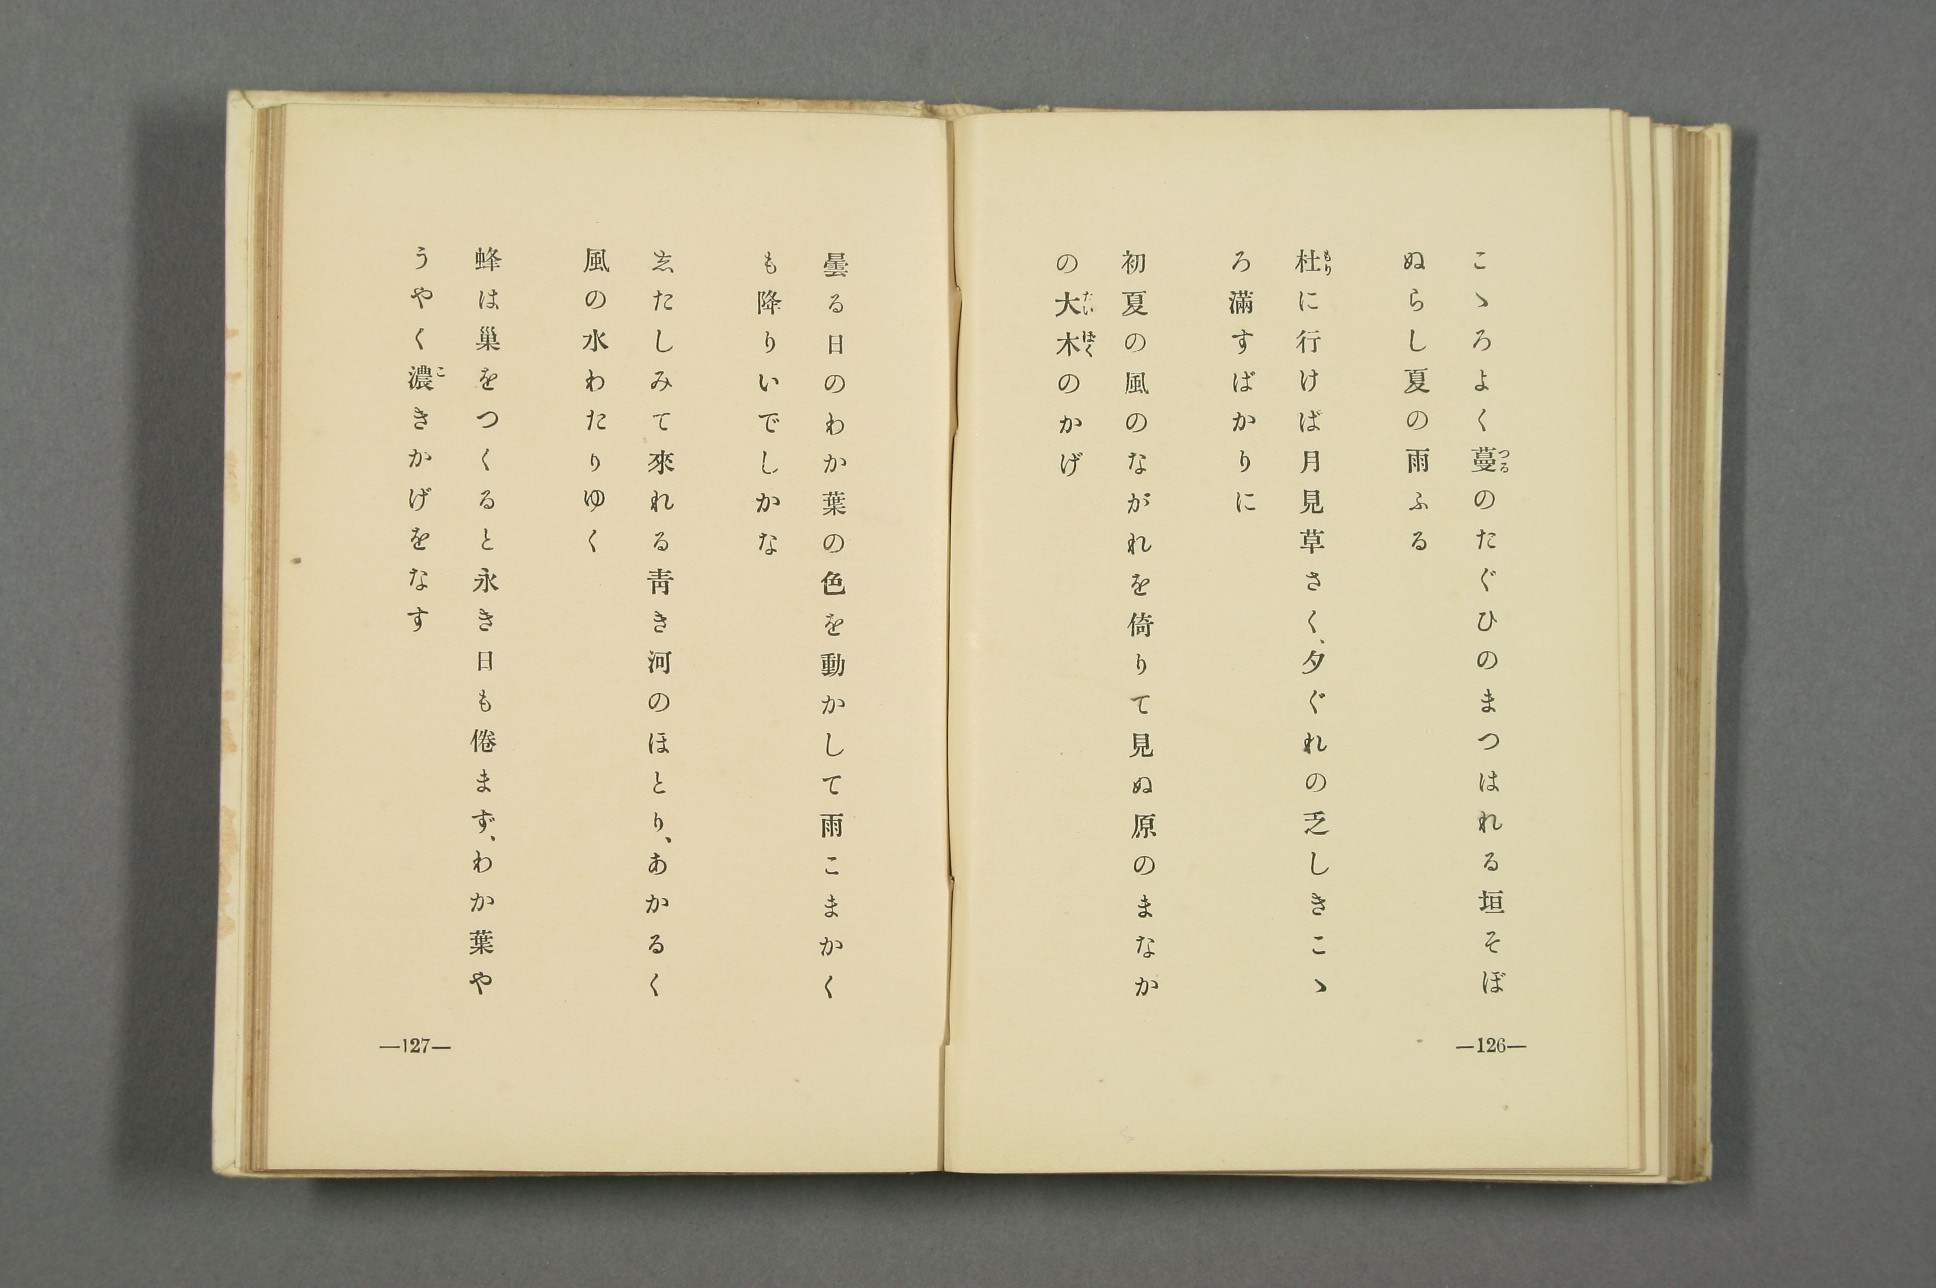 こゝろよく蔓のたぐひのまつはれる垣そぼ
ぬらし夏の雨ふる
杜に行けば月見草さく、夕ぐれの乏しきこゝ
ろ滿すばかりに
初夏の風のながれを倚りて見ぬ原のまなか
の大木のかげ
―126―
曇る日のわか葉の色を動かして雨こまかく
も降りいでしかな
志たしみて來れる靑き河のほとり、あかるく
風の水わたりゆく
蜂は巢をつくると永き日も倦まず、わか葉や
うやく濃きかげをなす
―127―